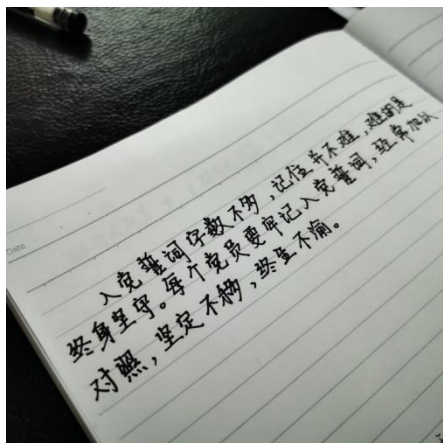 Date
入党誓词字数不多，记住并不难，难的是
终身坚守。每个党员要牢记入党誓词，经常加以
对照，坚定不移，终生不渝。